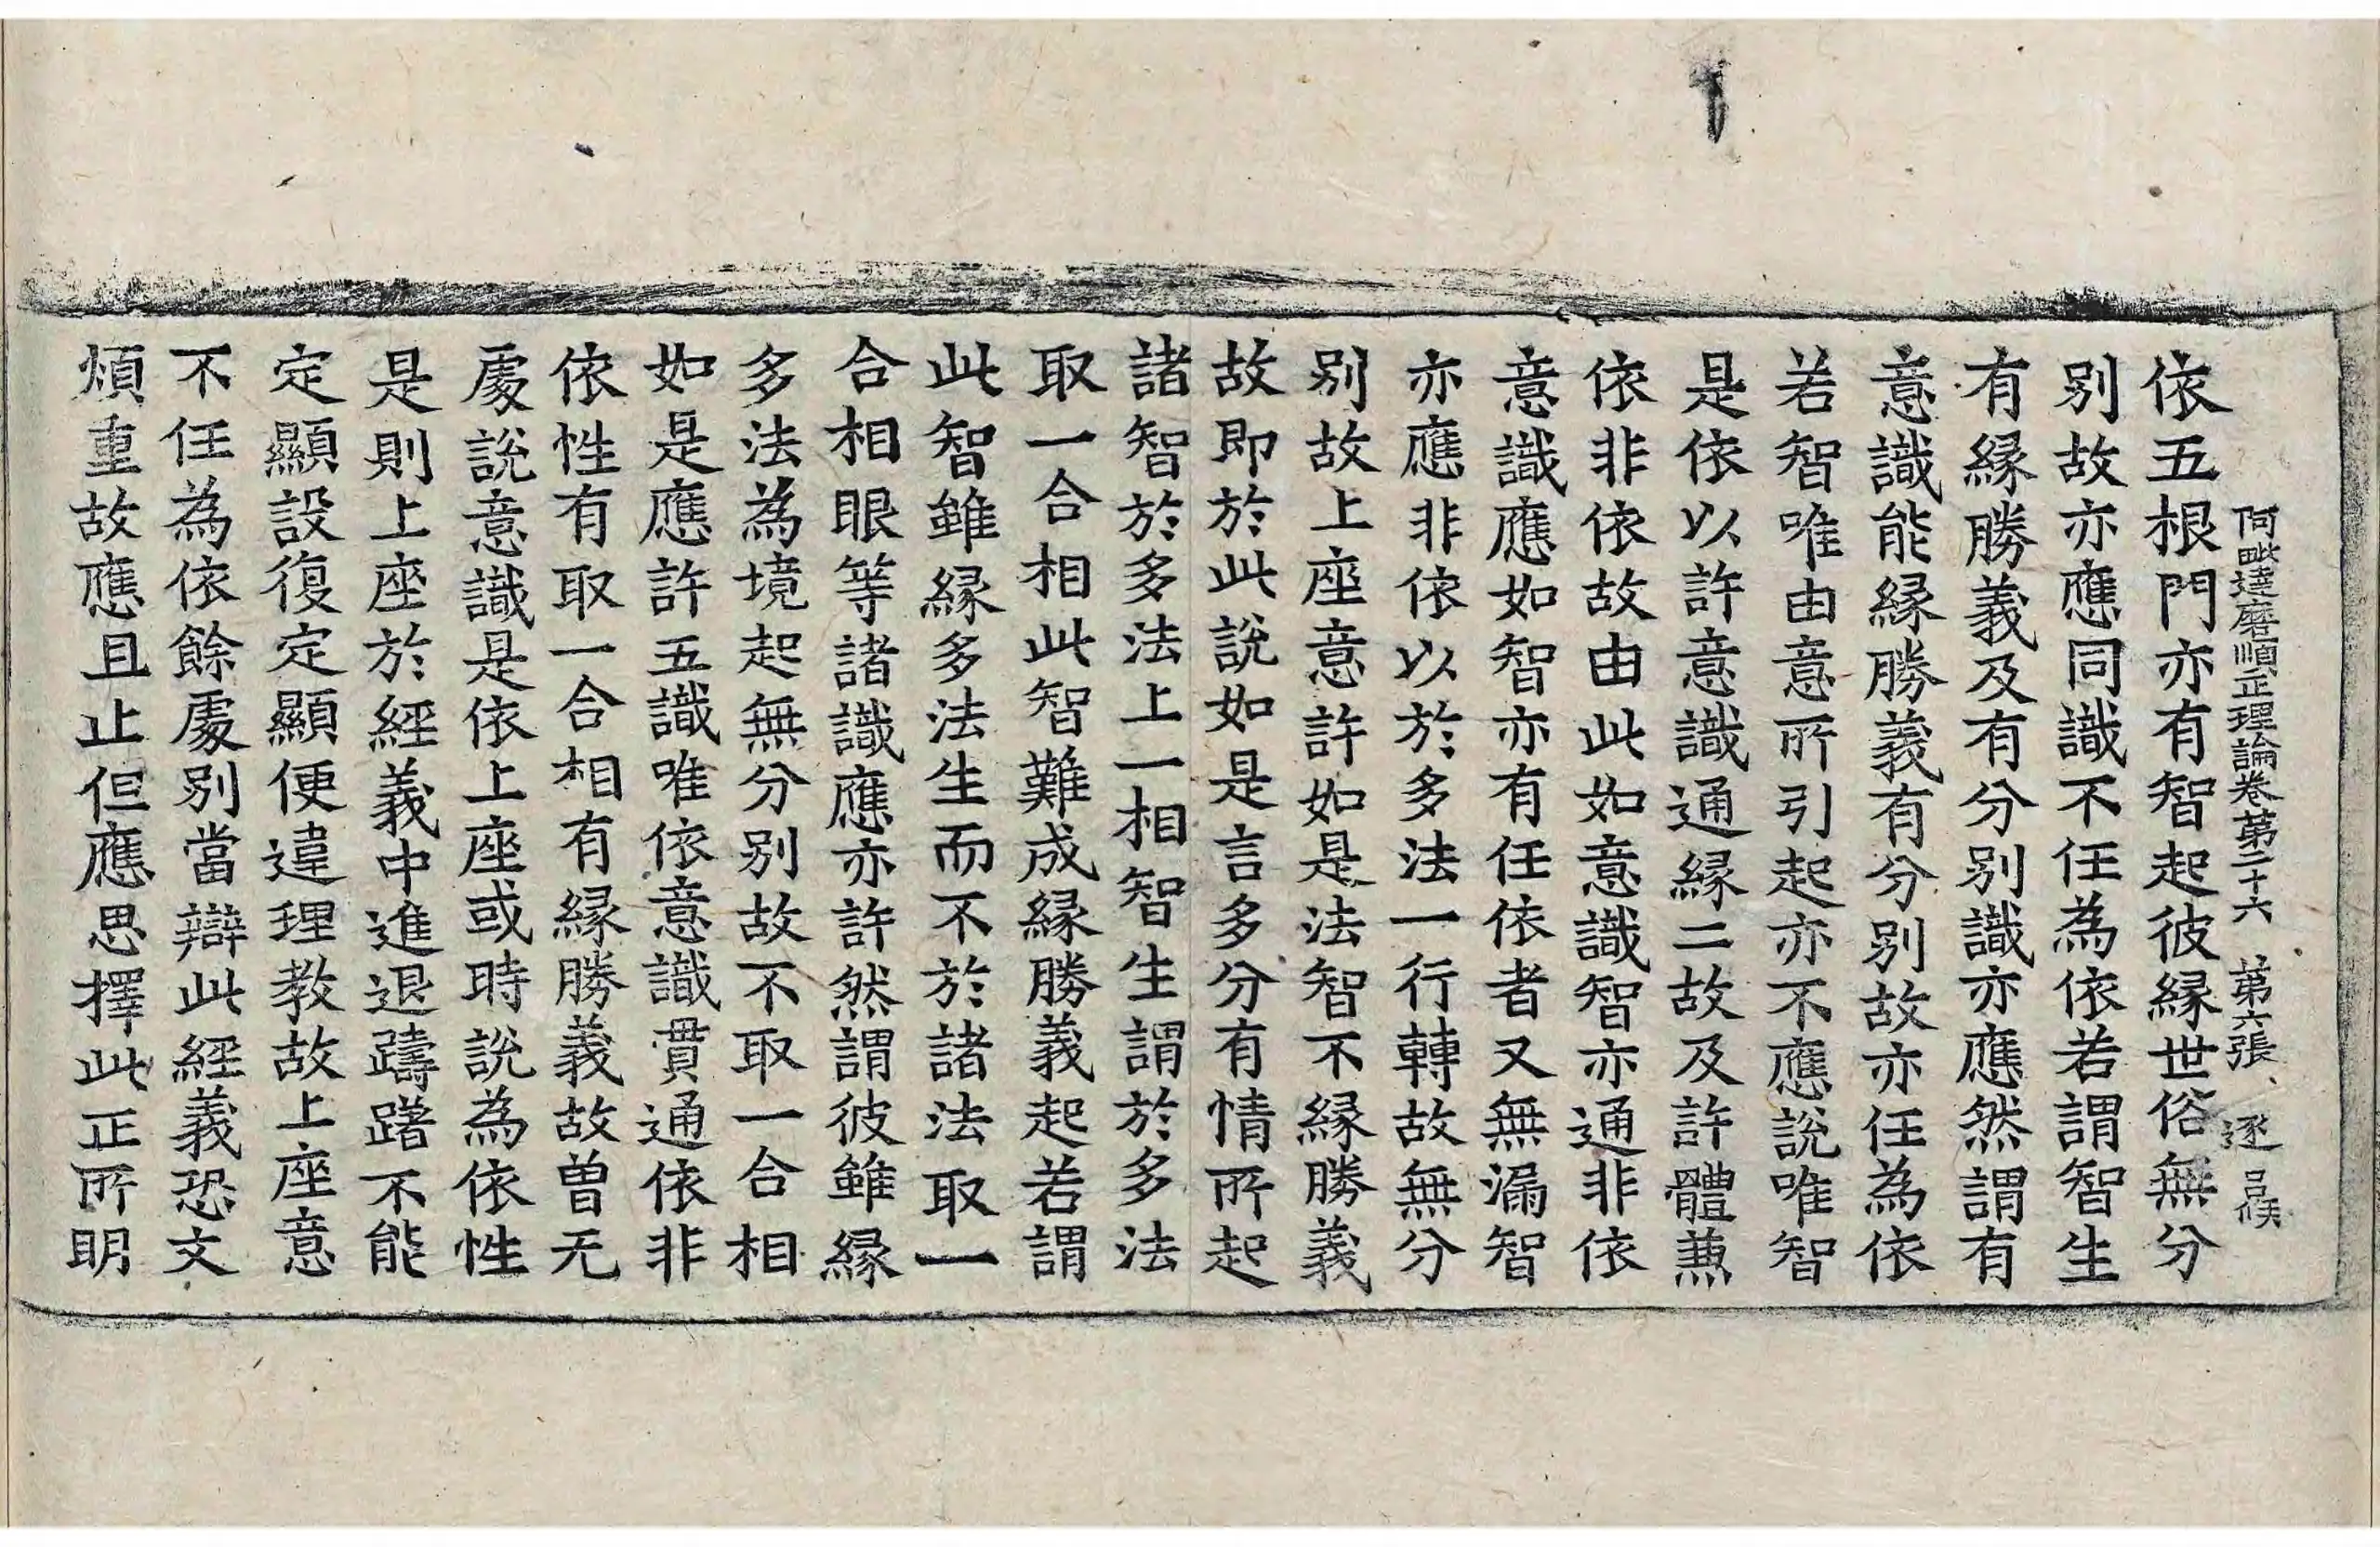 阿毗達磨順正理論卷第二十六 第六張 逐
依五根門亦有智起彼縁世俗無分
別故亦應同識不任為依若謂智生
有縁勝義及有分別識亦應然謂有
意識能縁勝義有分別故亦任為依
若智唯由意所引起亦不應說唯智
是依以許意識通縁二故及許體兼
依非依故由此如意識智亦通非依
意識應如智亦有任依者又無漏智
亦應非依以於多法一行轉故無分
別故上座意許如是法智不縁勝義
故即於此說如是言多分有情所起
諸智於多法上一相智生謂於多法
取一合相此智難成縁勝義起若謂
此智雖縁多法生而不於諸法取一
合相眼等諸識應亦許然謂彼雖縁
多法為境起無分別故不取一合相
如是應許五識唯依意識貫通依非
依性有取一合相有縁勝義故曾无
處說意識是依上座或時說為依性
是則上座於經義中進退躊躇不能
定顯設復定顯便違理教故上座意
不任為依餘處別當辯此經義恐文
煩重故應且止但應思擇此正所明